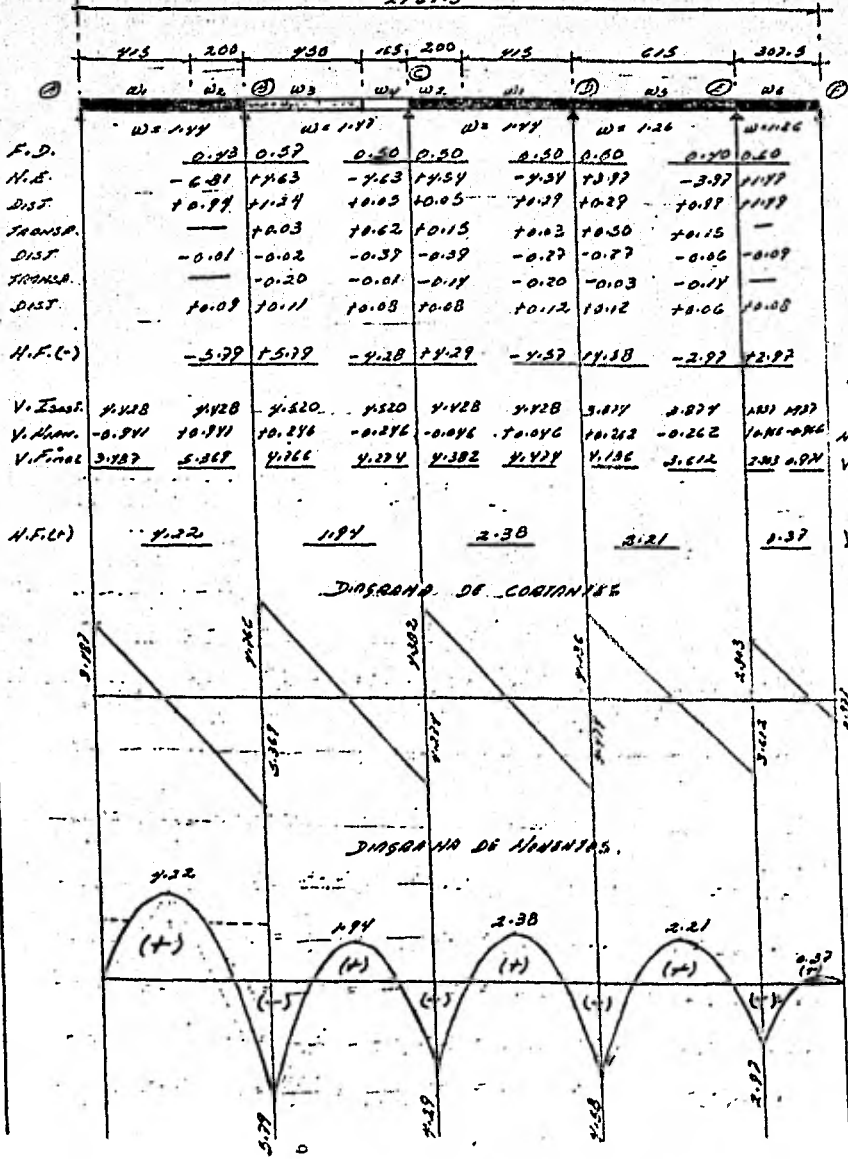 415 200 450 165 200 415 615 307.5
A w1 w2 B w3 w4 C w2 w1 D w5 E w6 F
w = 1.44 w = 1.47 w = 1.44 w = 1.26 w = 1.26
F.D. 0.43 0.57 0.50 0.50 0.50 0.50 0.40 0.60
M.E. -6.81 +4.63 -4.63 +4.54 -4.54 +3.97 -3.97 +1.49
DIST. +0.94 +1.24 +0.05 +0.05 +0.29 +0.29 +0.99 +1.49
TRANSP. — +0.03 +0.62 +0.15 +0.03 +0.50 +0.15 —
DIST. -0.01 -0.02 -0.39 -0.39 -0.27 -0.27 -0.06 -0.09
TRANSP. — -0.20 -0.01 -0.14 -0.20 -0.03 -0.14 —
DIST. +0.09 +0.11 +0.08 +0.08 +0.12 +0.12 +0.06 +0.08
M.F.(-) -5.79 +5.79 -4.28 +4.29 -4.57 +4.58 -2.97 +2.97
V. Isost. 4.428 4.428 4.520 4.520 4.428 4.428 3.874 3.874 1.937 1.937
V. Mom. -0.941 +0.941 +0.246 -0.246 -0.046 +0.046 +0.262 -0.262 +0.966 -0.966
V. Final 3.487 5.369 4.766 4.274 4.382 4.474 4.136 3.612 2.903 0.971
M.F.(+) 4.22 1.94 2.38 2.21 0.37
DIAGRAMA DE CORTANTES
3.487 4.766 4.382 4.136 2.903
5.369 4.274 4.474 3.612 0.971
DIAGRAMA DE MOMENTOS.
4.22 1.94 2.38 2.21 0.37
(+) (+) (+) (+) (+)
(-) (-) (-) (-)
5.79 4.29 4.58 2.97